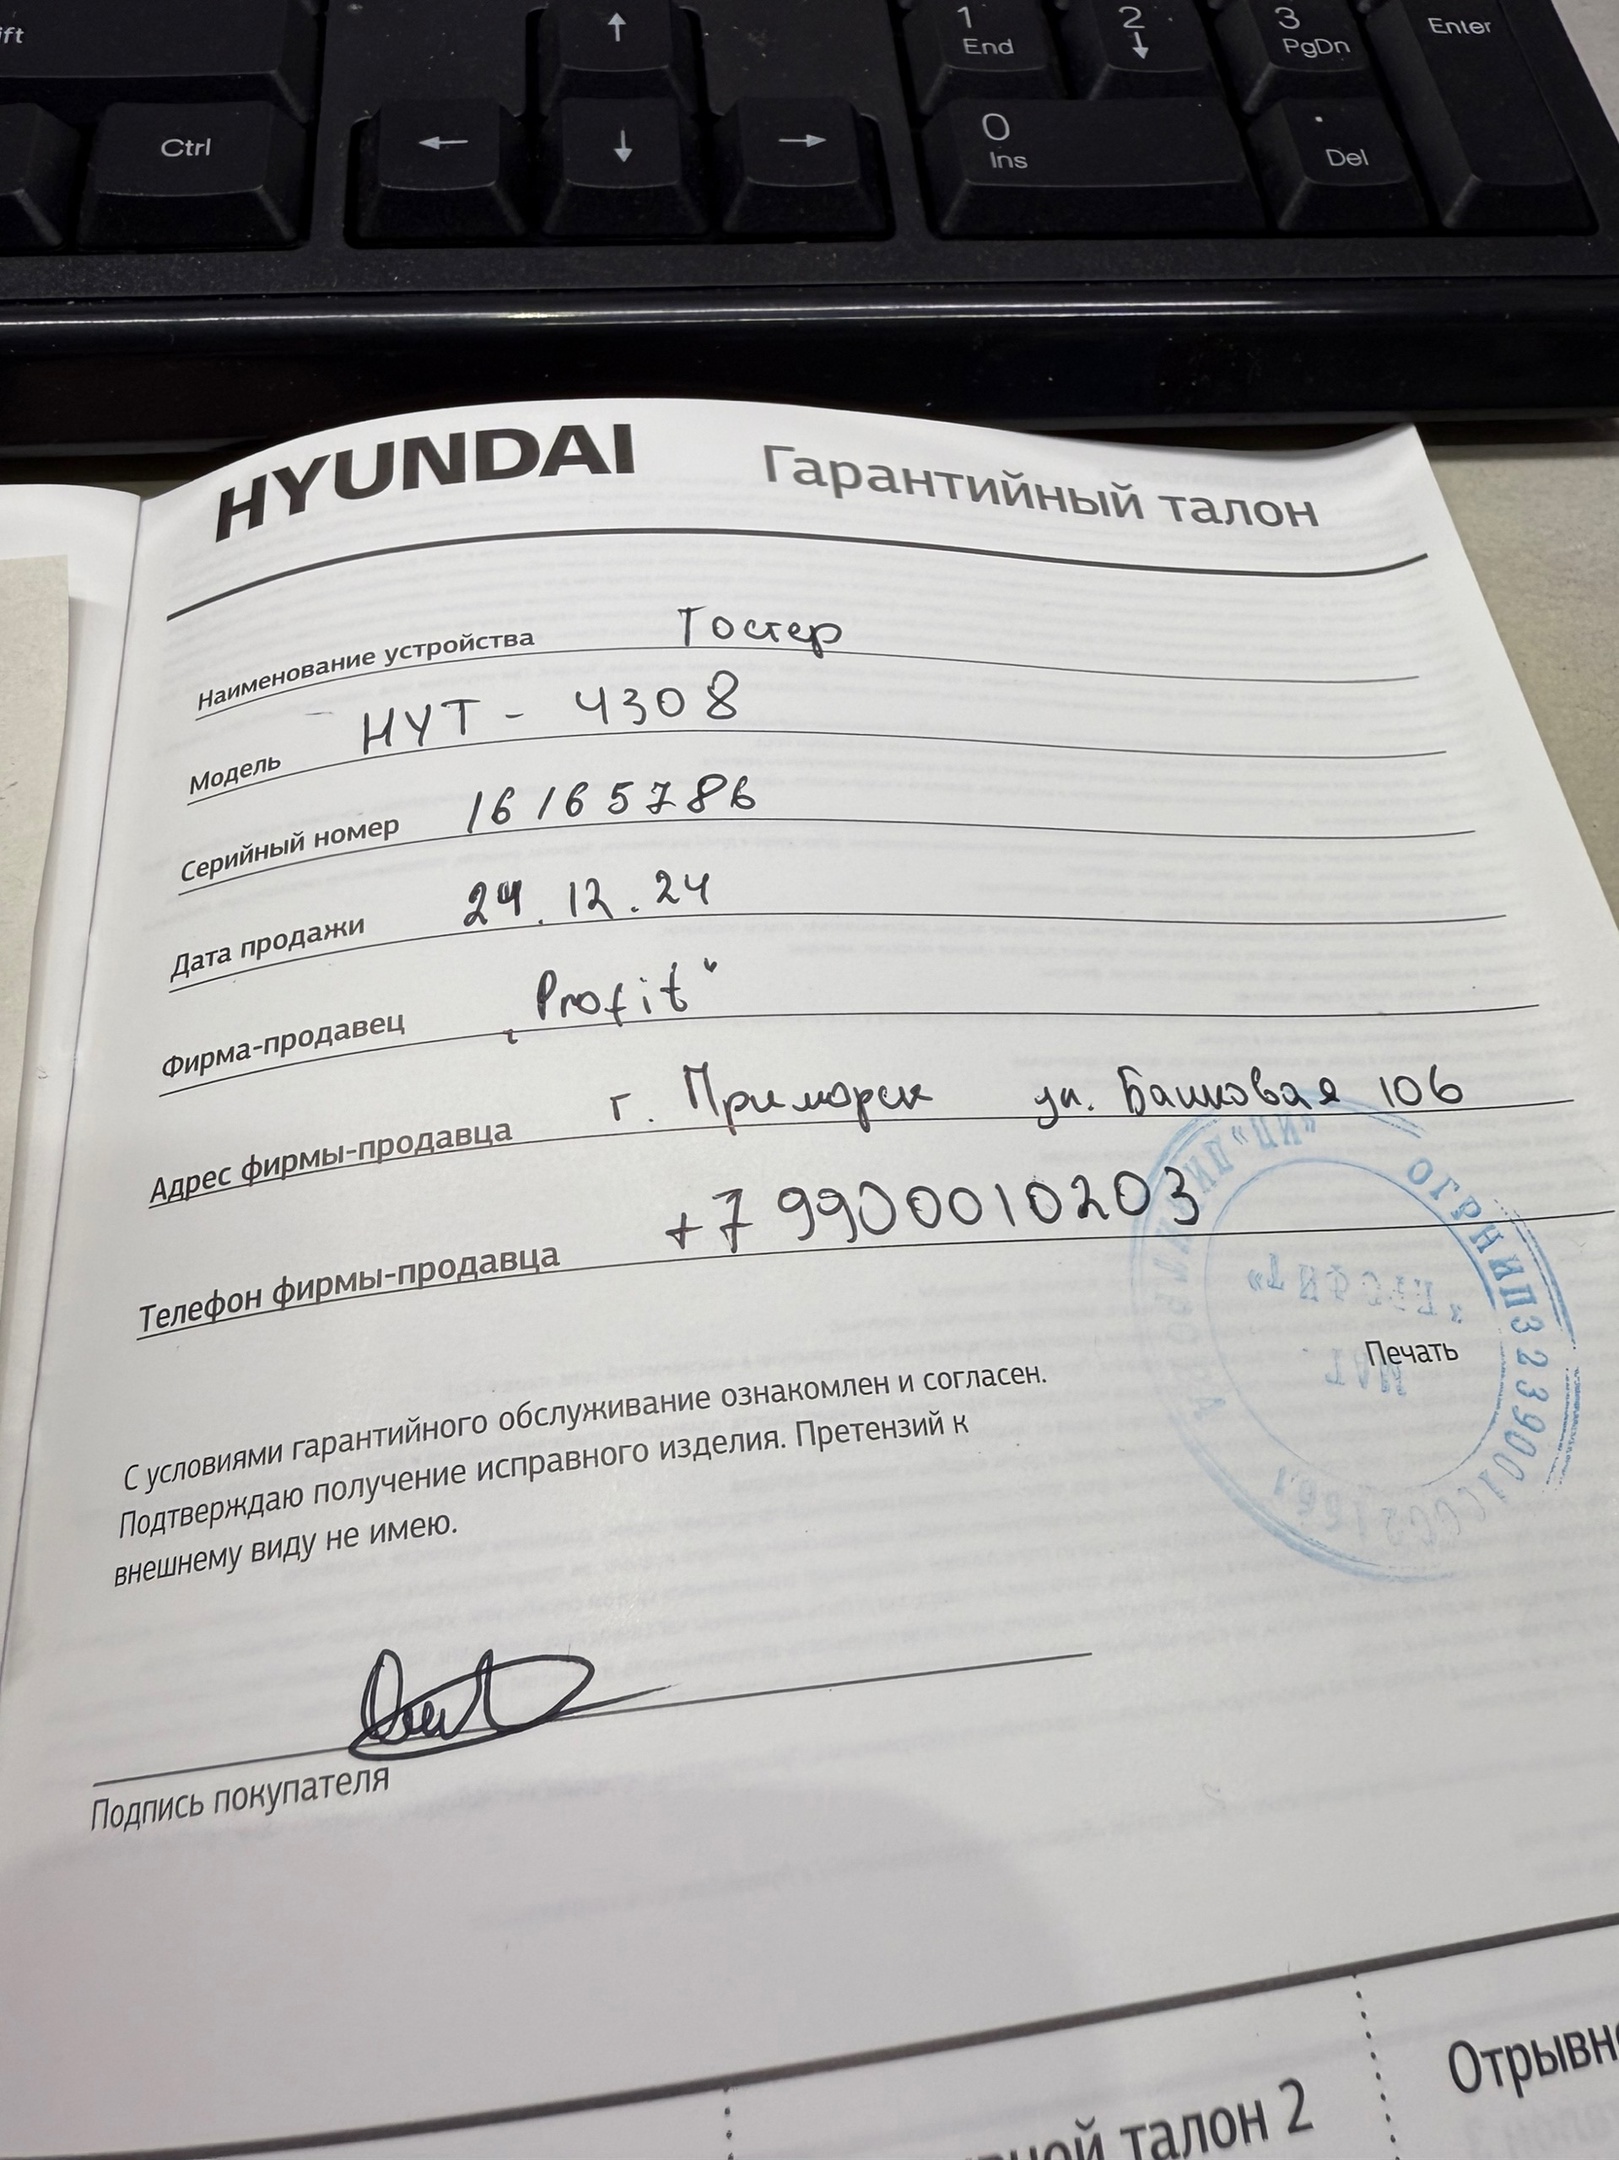 ift
1
End
2
3
PgDn
Enter
Ctrl
0
Ins
Del
HYUNDAI
Гарантийный талон
Наименование устройства Тостер
Модель HYT - 4308
Серийный номер 16165786
Дата продажи 24.12.24
Фирма-продавец „Profit“
Адрес фирмы-продавца г. Приморск ул. Банковая 106
Телефон фирмы-продавца +79900010203
ОГРНИП
Печать
С условиями гарантийного обслуживание ознакомлен и согласен.
Подтверждаю получение исправного изделия. Претензий к
внешнему виду не имею.
Подпись покупателя
талон 2